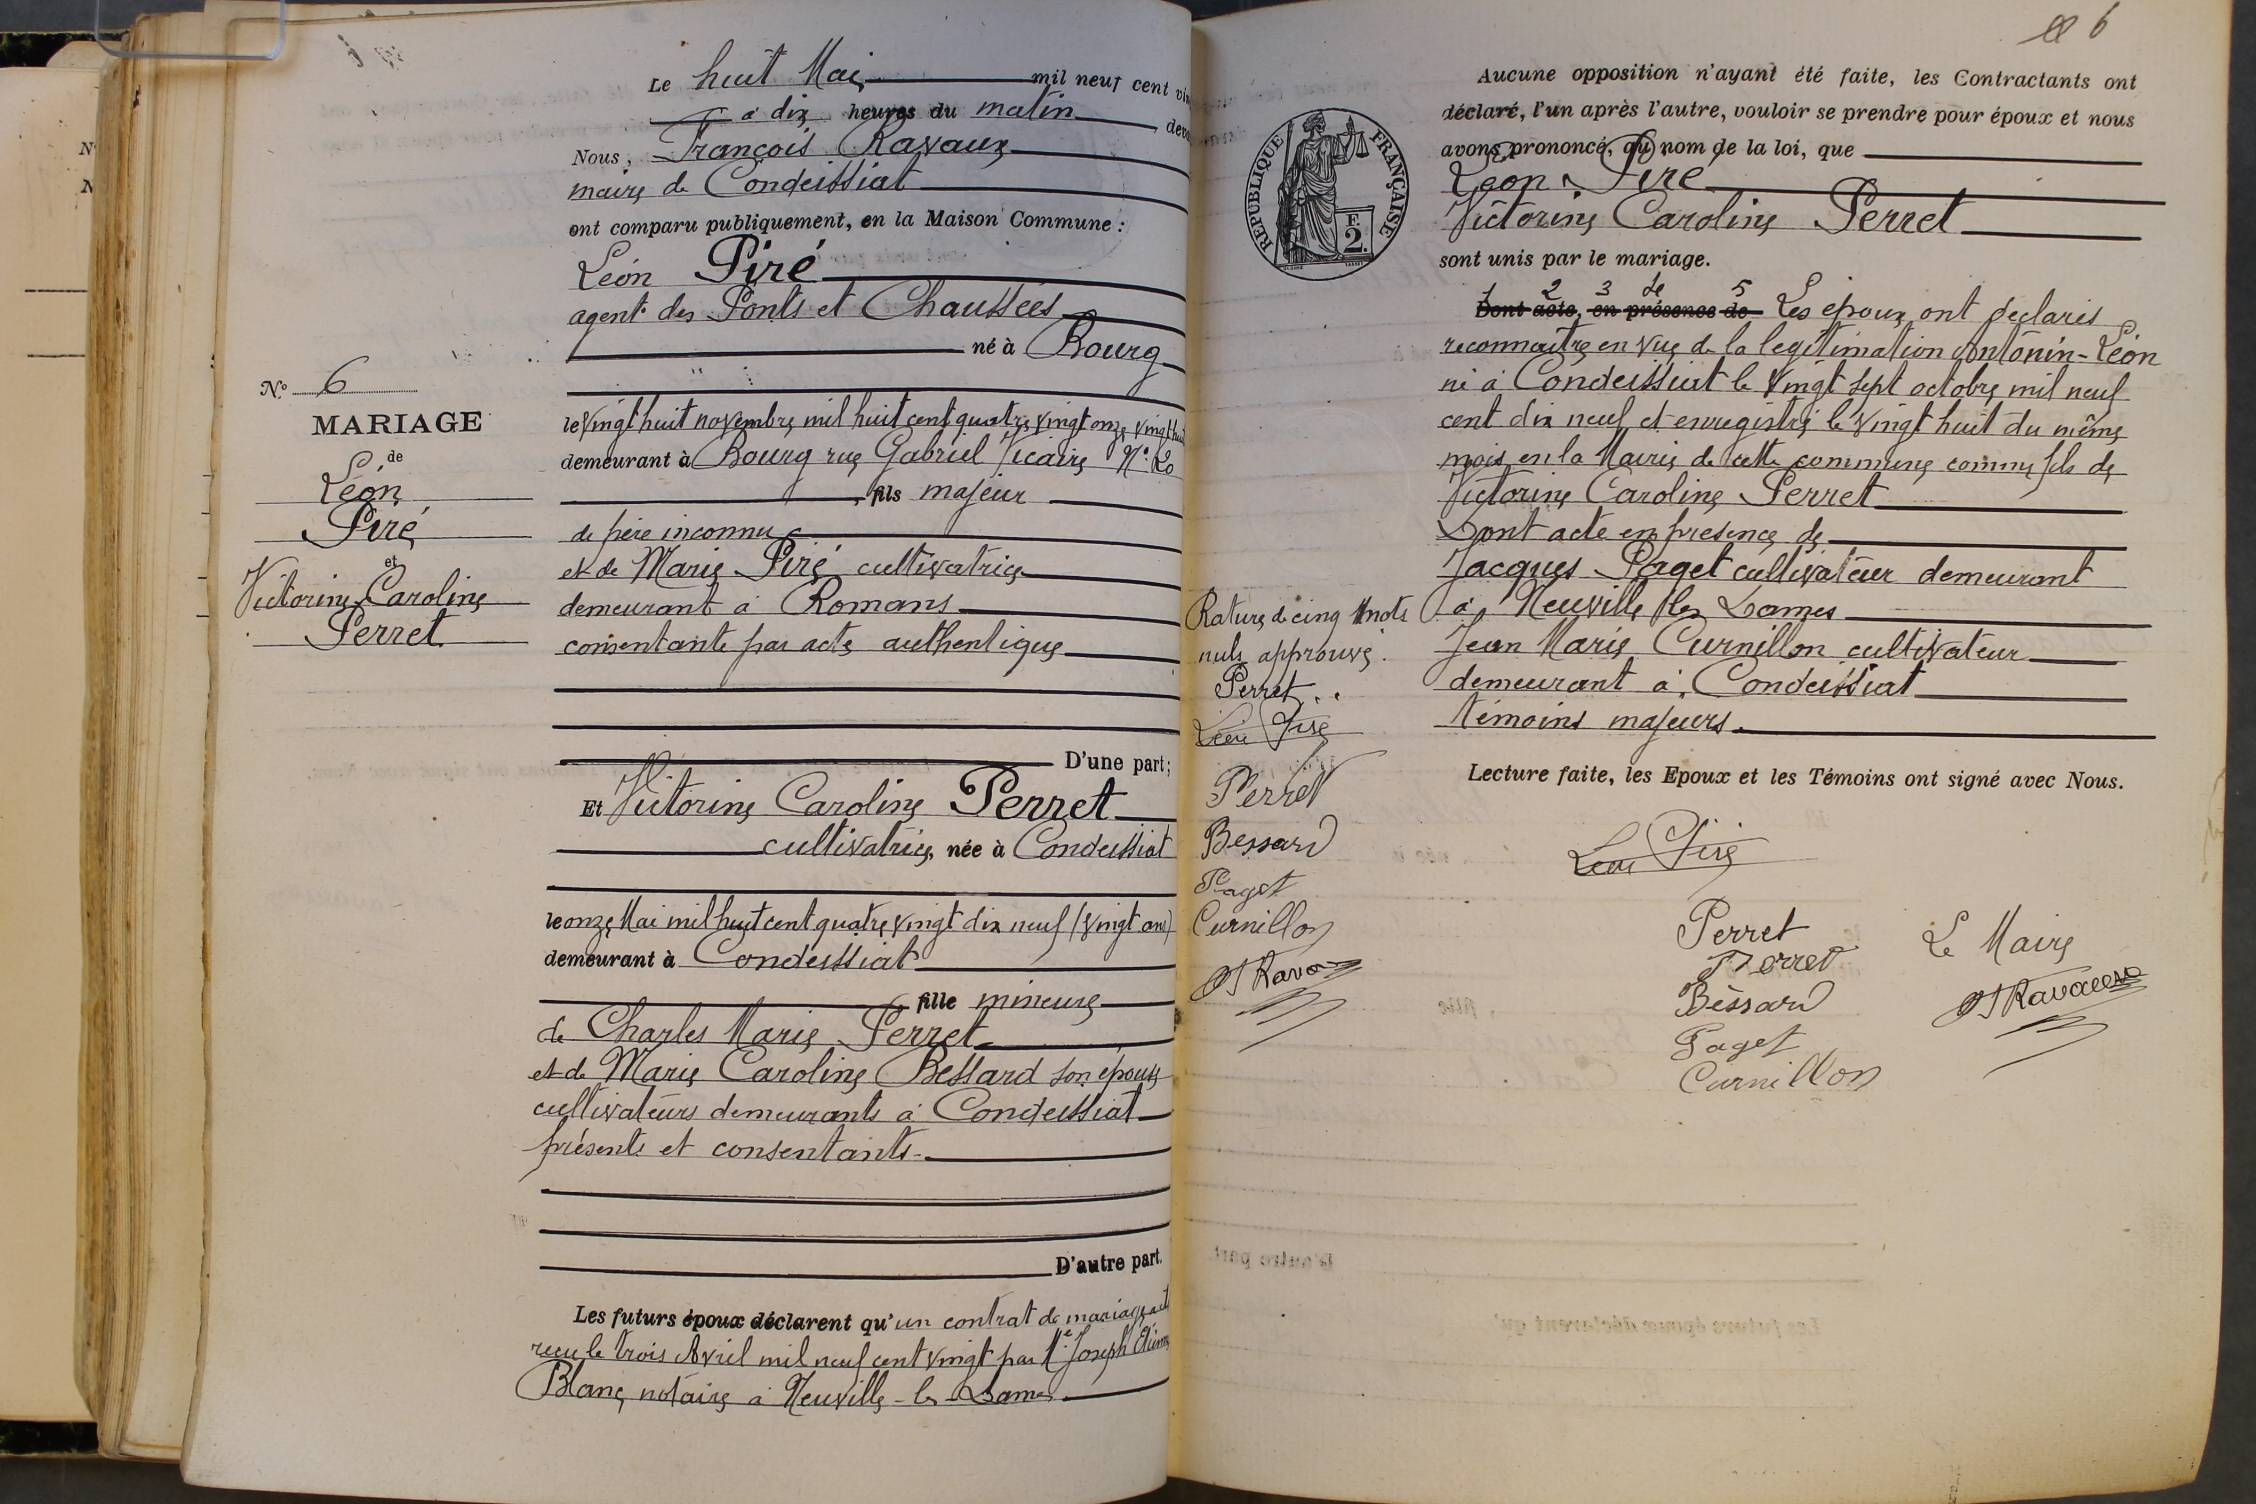 Le huit Mai mil neuf cent vin
à dix heures du matin, deva
Nous, François Ravaux
maire de Condeissiat
ont comparu publiquement, en la Maison Commune :
Léon Piré
agent des Ponts et Chaussées
né à Bourg
N° 6
MARIAGE
de
Léon
Piré
et
Victorine Caroline
Perret
le vingt huit novembre mil huit cent quatre vingt onze vingt huit
demeurant à Bourg rue Gabriel Vicaire N°
, fils majeur
de père inconnu
et de Marie Piré cultivatrice
demeurant à Romans
consentante par acte authentique
D'une part;
Et Victorine Caroline Perret
cultivatrice, née à Condeissiat
le onze Mai mil huit cent quatre vingt dix neuf (vingt ans)
demeurant à Condeissiat
, fille mineure
de Charles Marie Perret
et de Marie Caroline Bessard son épouse
cultivateurs demeurants à Condeissiat
présents et consentants.
D'autre part.
Les futurs époux déclarent qu'un contrat de mariage a été
reçu le trois Avril mil neuf cent vingt par Me Joseph Etienne
Blanc, notaire à Neuville-les-Dames
6
RÉPUBLIQUE FRANÇAISE
F.
2.
Aucune opposition n'ayant été faite, les Contractants ont
déclaré, l'un après l'autre, vouloir se prendre pour époux et nous
avons prononcé, au nom de la loi, que
Léon Piré
Victorine Caroline Perret
sont unis par le mariage.
1 2 3 4 5
Dont acte, en présence de Les époux ont déclarés
reconnaitre en vue de la legitimation Antonin-Léon
né à Condeissiat le vingt sept octobre mil neuf
cent dix neuf et enregistré le vingt huit du même
mois en la Mairie de cette commune comme fils de
Victorine Caroline Perret
Dont acte en presence de
Jacques Paget cultivateur demeurant
à Neuville les Dames
Jean Marie Curnillon cultivateur
demeurant à Condeissiat
témoins majeurs.
Rature de cinq mots
nuls approuvé.
Perret
Léon Piré
Perret
Bessard
Paget
Curnillon
Ravaux
Lecture faite, les Epoux et les Témoins ont signé avec Nous.
Léon Piré
Perret
Perret
Bessard
Paget
Curnillon
Le Maire
Ravaux